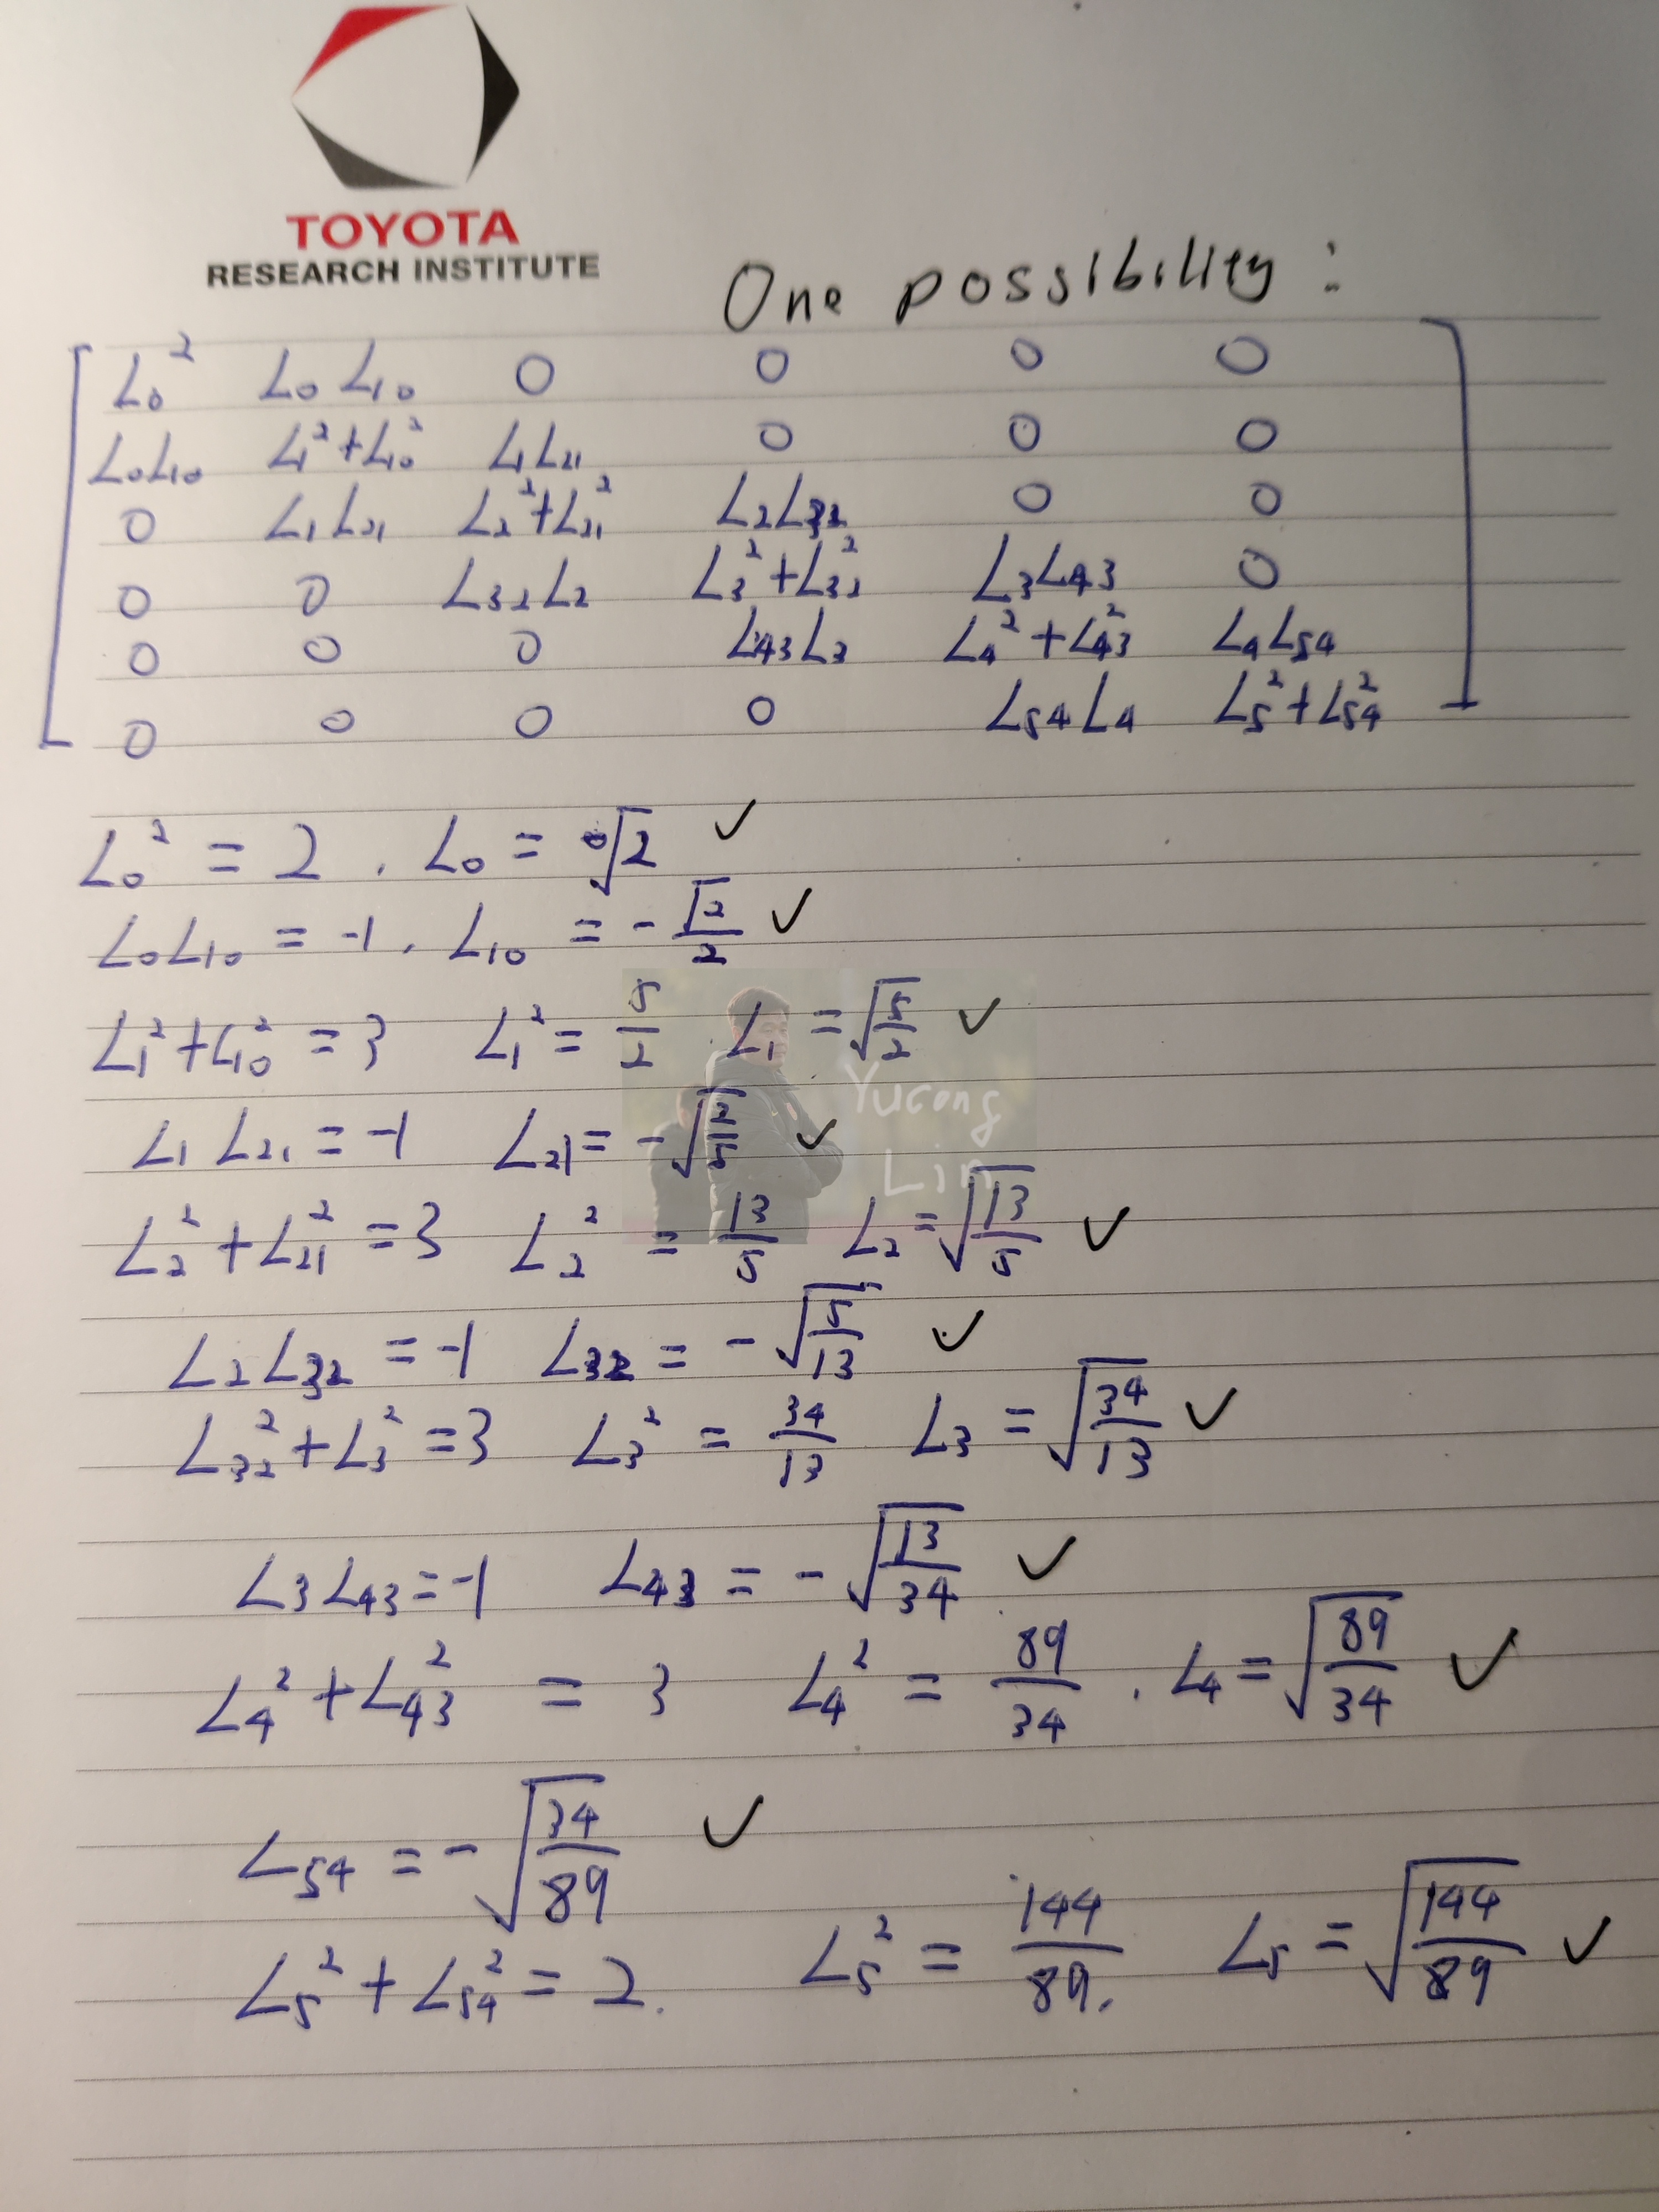 TOYOTA
RESEARCH INSTITUTE
One possibility :
L₀² L₀L₁₀ 0 0 0 0
L₀L₁₀ L₁²+L₁₀² L₁L₂₁ 0 0 0
0 L₁L₂₁ L₂²+L₂₁² L₂L₃₂ 0 0
0 0 L₃₂L₂ L₃²+L₃₂² L₃L₄₃ 0
0 0 0 L₄₃L₃ L₄²+L₄₃² L₄L₅₄
0 0 0 0 L₅₄L₄ L₅²+L₅₄²
L₀² = 2 . L₀ = √2 ✓
L₀L₁₀ = -1 . L₁₀ = -√2/2 ✓
L₁²+L₁₀² = 3 L₁² = 5/2 L₁ = √(5/2) ✓
L₁L₂₁ = -1 L₂₁ = -√(2/5) ✓
L₂²+L₂₁² = 3 L₂² = 13/5 L₂ = √(13/5) ✓
L₂L₃₂ = -1 L₃₂ = -√(5/13) ✓
L₃₂²+L₃² = 3 L₃² = 34/13 L₃ = √(34/13) ✓
L₃L₄₃ = -1 L₄₃ = -√(13/34) ✓
L₄²+L₄₃² = 3 L₄² = 89/34 . L₄ = √(89/34) ✓
L₅₄ = -√(34/89) ✓
L₅²+L₅₄² = 2. L₅² = 144/89. L₅ = √(144/89) ✓
Yucong
Lin